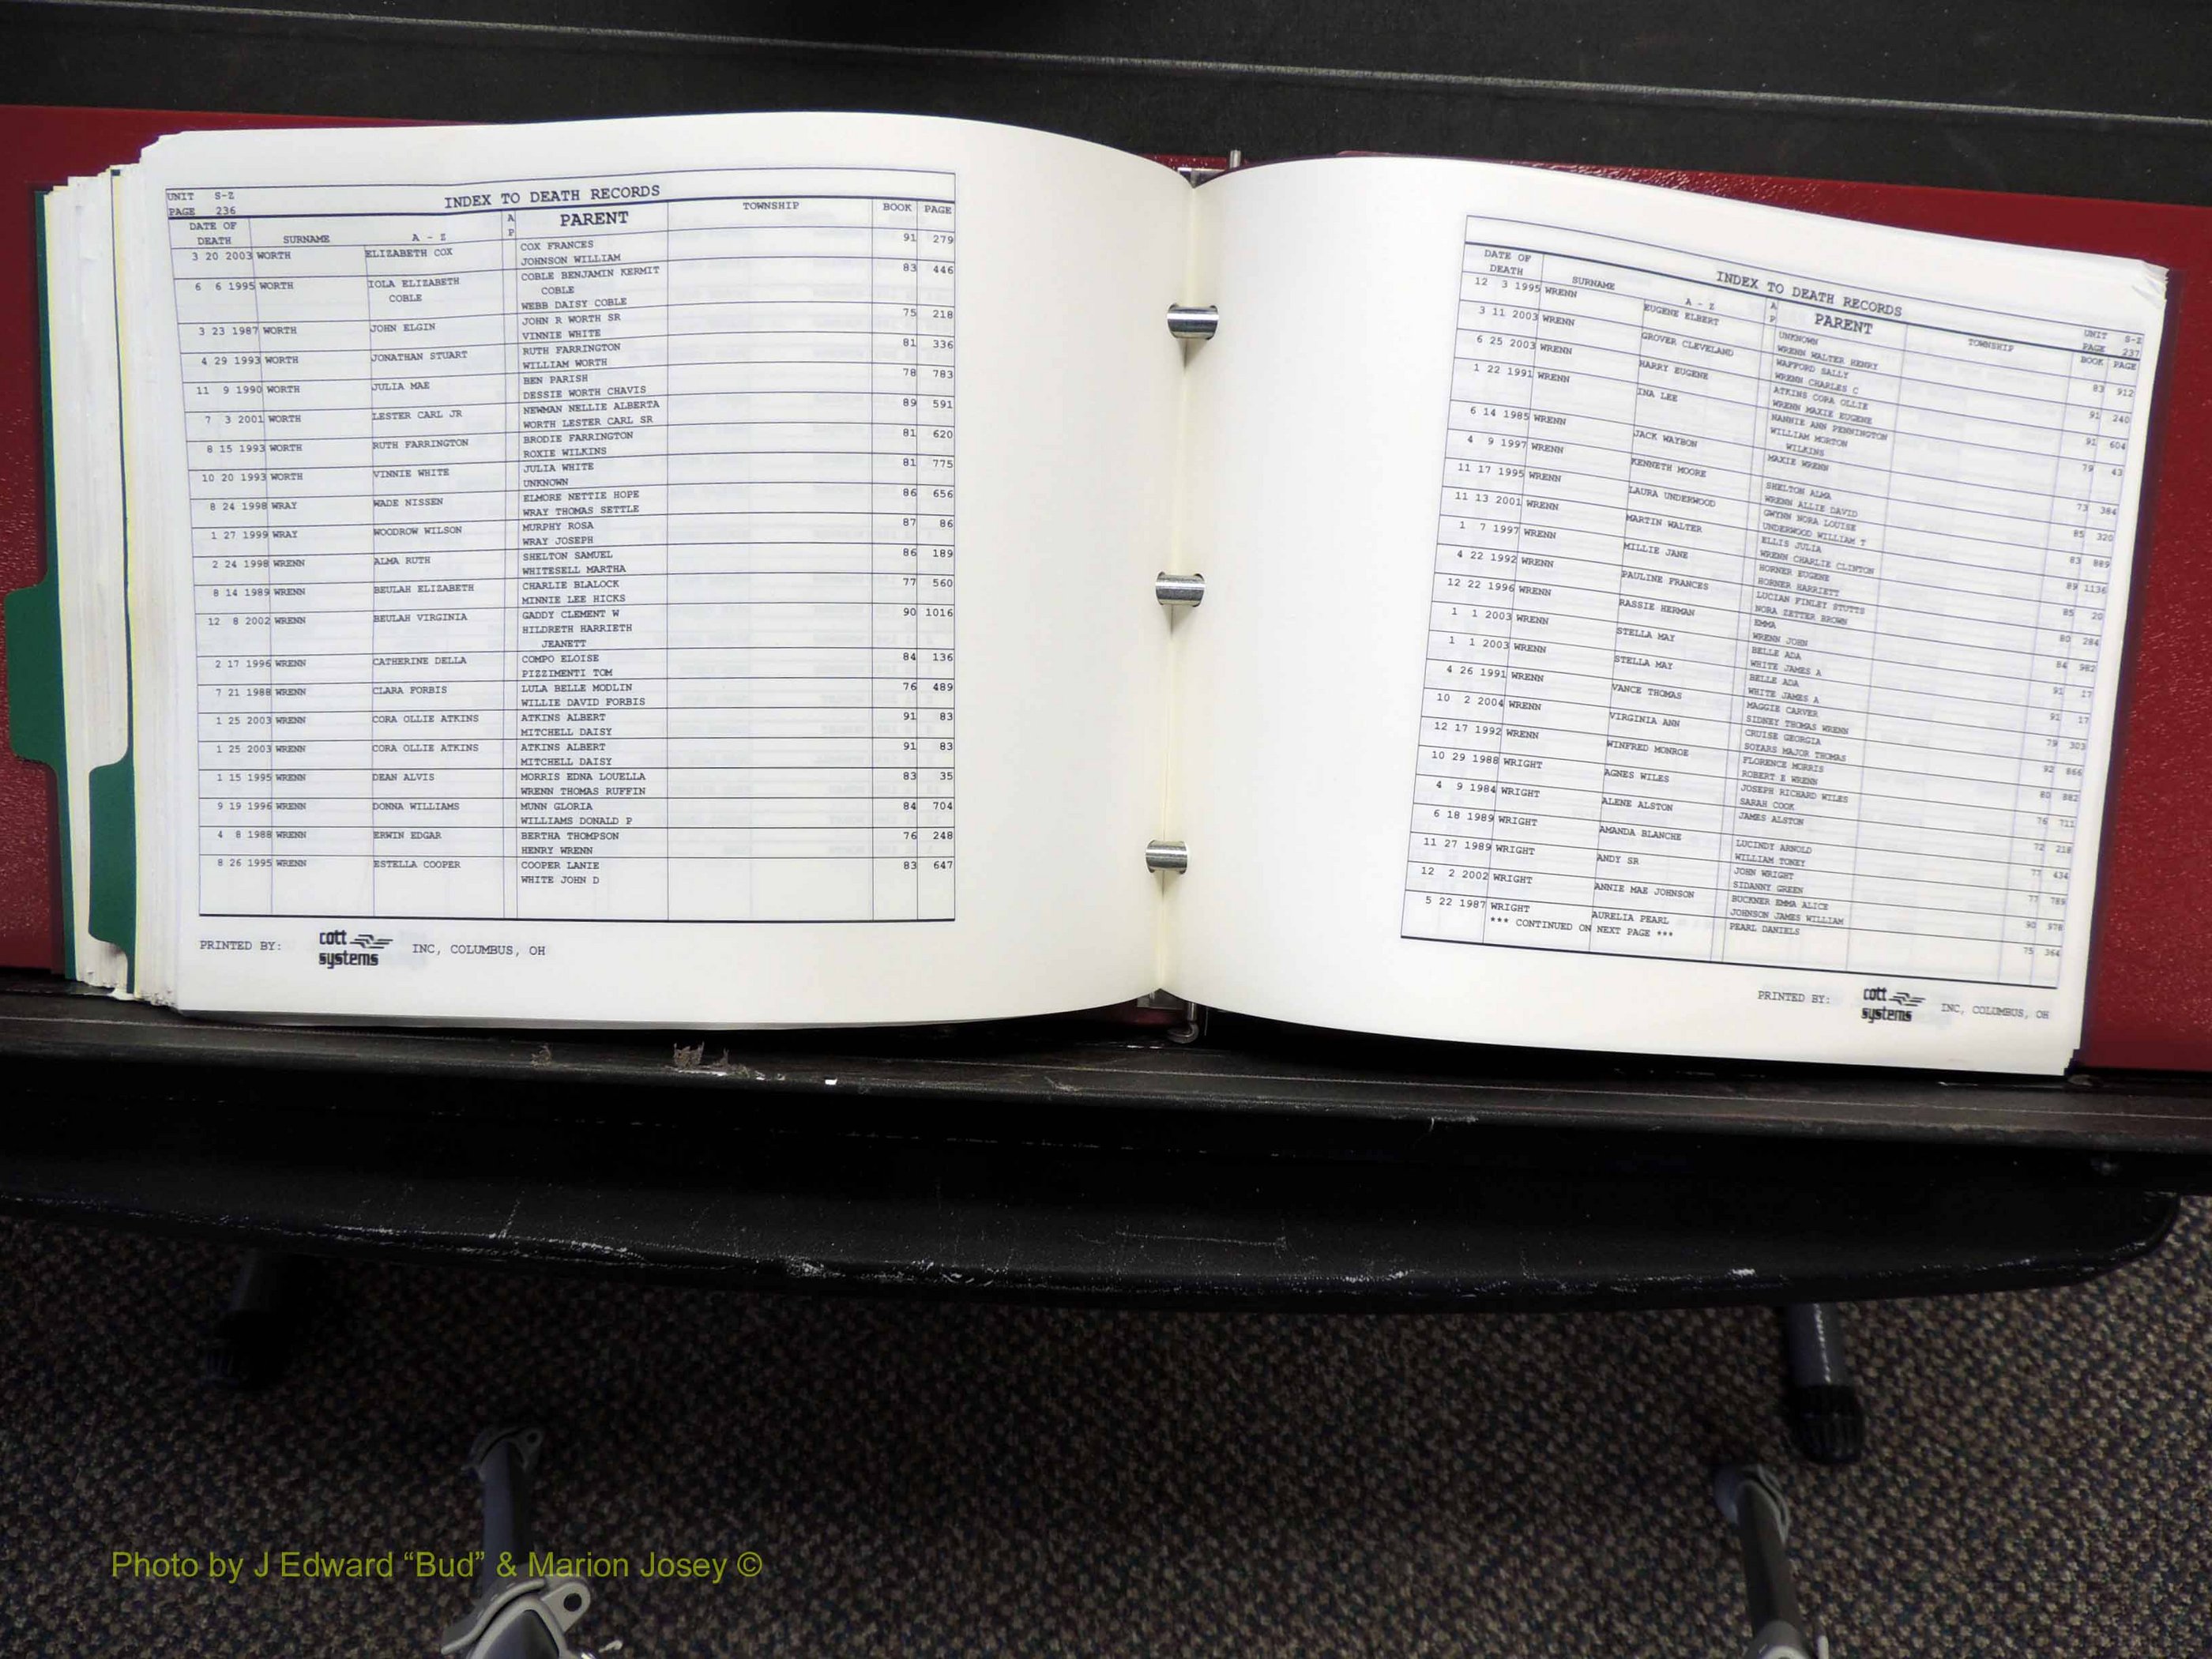 UNIT S-Z
PAGE 236
INDEX TO DEATH RECORDS
DATE OF DEATH SURNAME A - Z A P PARENT TOWNSHIP BOOK PAGE
3 20 2003 WORTH ELIZABETH COX COX FRANCES 91 279
JOHNSON WILLIAM
6 6 1995 WORTH IOLA ELIZABETH COBLE BENJAMIN KERMIT 83 446
COBLE COBLE
WEBB DAISY COBLE
3 23 1987 WORTH JOHN ELGIN JOHN R WORTH SR 75 218
VINNIE WHITE
4 29 1993 WORTH JONATHAN STUART RUTH FARRINGTON 81 336
WILLIAM WORTH
11 9 1990 WORTH JULIA MAE BEN PARISH 78 783
DESSIE WORTH CHAVIS
7 3 2001 WORTH LESTER CARL JR NEWMAN NELLIE ALBERTA 89 591
WORTH LESTER CARL SR
8 15 1993 WORTH RUTH FARRINGTON BRODIE FARRINGTON 81 620
ROXIE WILKINS
10 20 1993 WORTH VINNIE WHITE JULIA WHITE 81 775
UNKNOWN
8 24 1998 WRAY WADE NISSEN ELMORE NETTIE HOPE 86 656
WRAY THOMAS SETTLE
1 27 1999 WRAY WOODROW WILSON MURPHY ROSA 87 86
WRAY JOSEPH
2 24 1998 WRENN ALMA RUTH SHELTON SAMUEL 86 189
WHITESELL MARTHA
8 14 1989 WRENN BEULAH ELIZABETH CHARLIE BLALOCK 77 560
MINNIE LEE HICKS
12 8 2002 WRENN BEULAH VIRGINIA GADDY CLEMENT W 90 1016
HILDRETH HARRIETH
JEANETT
2 17 1996 WRENN CATHERINE DELLA COMPO ELOISE 84 136
PIZZIMENTI TOM
7 21 1988 WRENN CLARA FORBIS LULA BELLE MODLIN 76 489
WILLIE DAVID FORBIS
1 25 2003 WRENN CORA OLLIE ATKINS ATKINS ALBERT 91 83
MITCHELL DAISY
1 25 2003 WRENN CORA OLLIE ATKINS ATKINS ALBERT 91 83
MITCHELL DAISY
1 15 1995 WRENN DEAN ALVIS MORRIS EDNA LOUELLA 83 35
WRENN THOMAS RUFFIN
9 19 1996 WRENN DONNA WILLIAMS MUNN GLORIA 84 704
WILLIAMS DONALD P
4 8 1988 WRENN ERWIN EDGAR BERTHA THOMPSON 76 248
HENRY WRENN
8 26 1995 WRENN ESTELLA COOPER COOPER LANIE 83 647
WHITE JOHN D
PRINTED BY: cott systems INC, COLUMBUS, OH
INDEX TO DEATH RECORDS
UNIT S-Z
PAGE 237
DATE OF DEATH SURNAME A - Z A P PARENT TOWNSHIP BOOK PAGE
12 3 1995 WRENN EUGENE ELBERT UNKNOWN 83 912
WRENN WALTER HENRY
3 11 2003 WRENN GROVER CLEVELAND WAFFORD SALLY 91 240
WRENN CHARLES C
6 25 2003 WRENN HARRY EUGENE ATKINS CORA OLLIE 91 604
WRENN MAXIE EUGENE
1 22 1991 WRENN INA LEE NANNIE ANN PENNINGTON 79 43
WILLIAM MORTON
WILKINS
6 14 1985 WRENN JACK WAYBON MAXIE WRENN 73 384
SHELTON ALMA
4 9 1997 WRENN KENNETH MOORE WRENN ALLIE DAVID 85 320
11 17 1995 WRENN LAURA UNDERWOOD GWYNN NORA LOUISE 83 889
UNDERWOOD WILLIAM T
11 13 2001 WRENN MARTIN WALTER ELLIS JULIA 89 1136
WRENN CHARLIE CLINTON
1 7 1997 WRENN MILLIE JANE HORNER EUGENE 85 20
HORNER HARRIETT
4 22 1992 WRENN PAULINE FRANCES LUCIAN FINLEY STUTTS 80 284
NORA ZETTER BROWN
12 22 1996 WRENN RASSIE HERMAN EMMA 84 982
WRENN JOHN
1 1 2003 WRENN STELLA MAY BELLE ADA 91 17
WHITE JAMES A
1 1 2003 WRENN STELLA MAY BELLE ADA 91 17
WHITE JAMES A
4 26 1991 WRENN VANCE THOMAS MAGGIE CARVER 79 303
SIDNEY THOMAS WRENN
10 2 2004 WRENN VIRGINIA ANN CRUISE GEORGIA 92 866
SOYARS MAJOR THOMAS
12 17 1992 WRENN WINFRED MONROE FLORENCE MORRIS 80 882
ROBERT E WRENN
10 29 1988 WRIGHT AGNES WILES JOSEPH RICHARD WILES 76 711
SARAH COOK
4 9 1984 WRIGHT ALENE ALSTON JAMES ALSTON 72 218
6 18 1989 WRIGHT AMANDA BLANCHE LUCINDY ARNOLD 77 434
WILLIAM TONEY
11 27 1989 WRIGHT ANDY SR JOHN WRIGHT 77 789
SIDANNY GREEN
12 2 2002 WRIGHT ANNIE MAE JOHNSON BUCKNER EMMA ALICE 90 978
JOHNSON JAMES WILLIAM
5 22 1987 WRIGHT AURELIA PEARL PEARL DANIELS 75 364
*** CONTINUED ON NEXT PAGE ***
PRINTED BY: cott systems INC, COLUMBUS, OH
Photo by J Edward “Bud” & Marion Josey ©